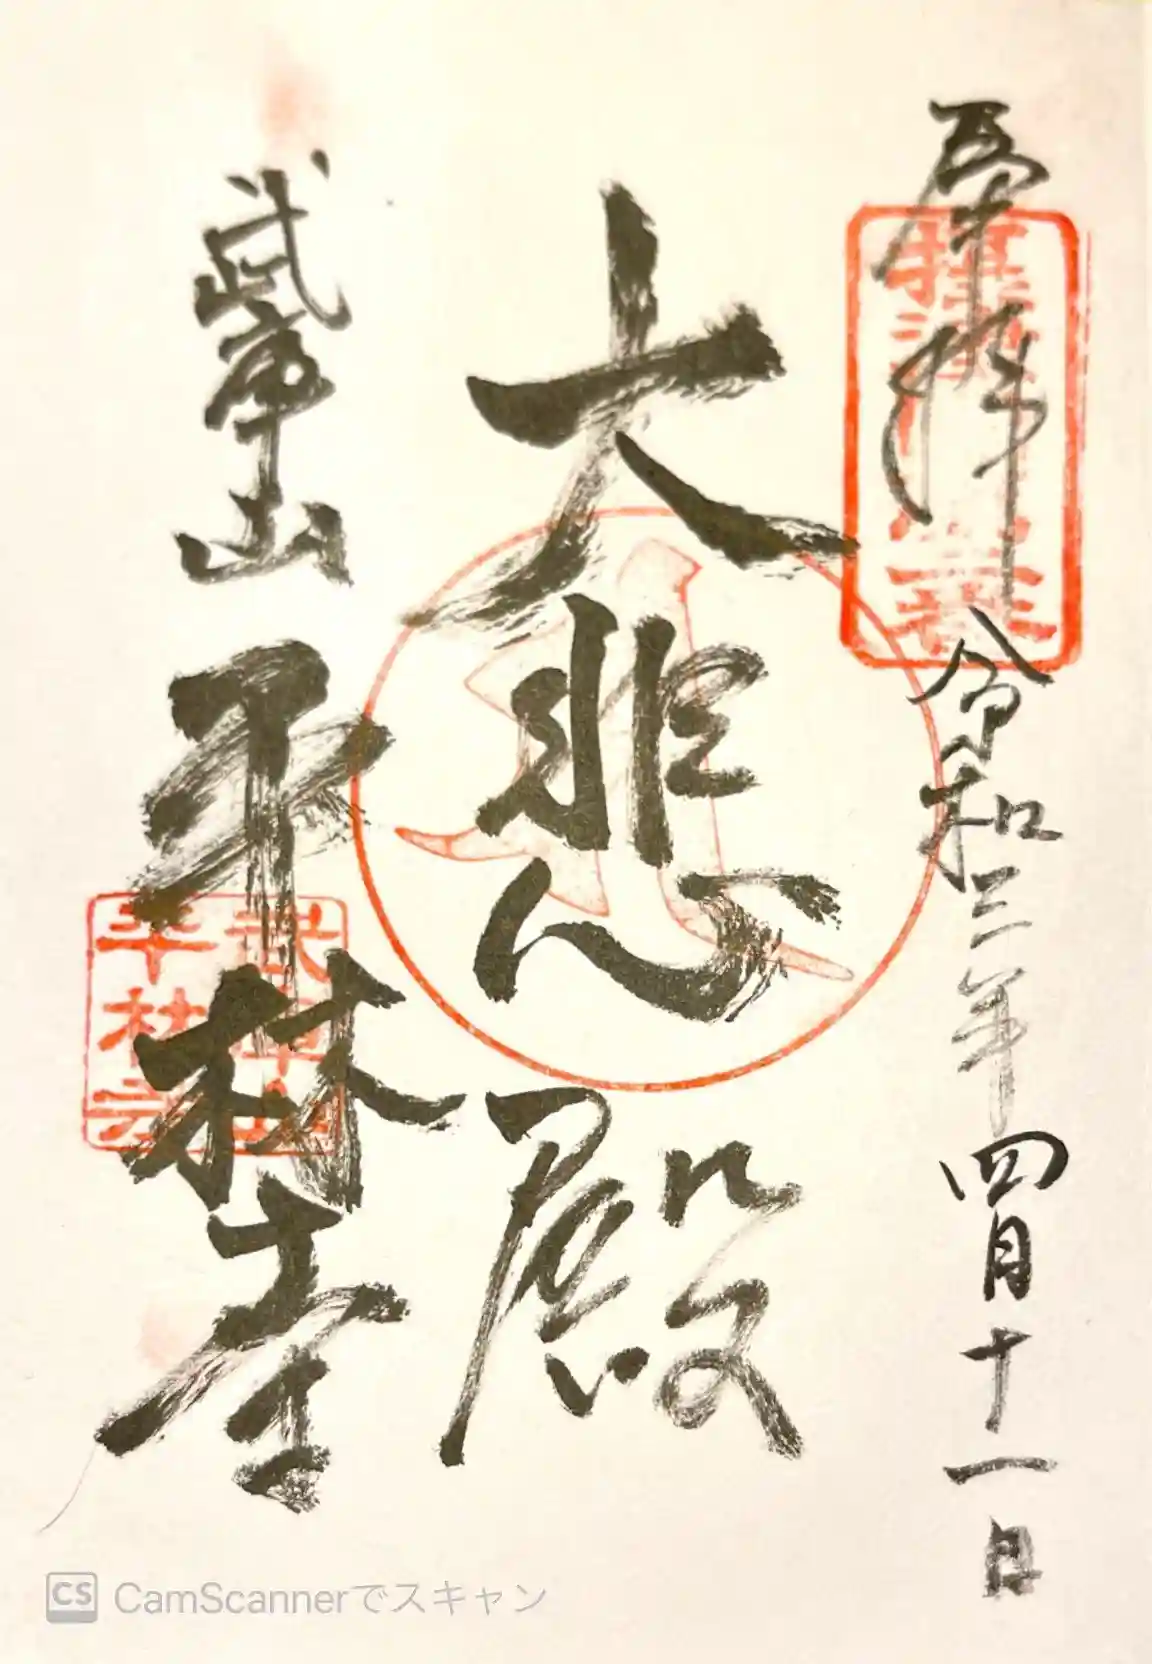 奉拝
令和三年四月十一日
大悲殿
武庫山
平林寺
武庫山
平林寺
CS CamScannerでスキャン